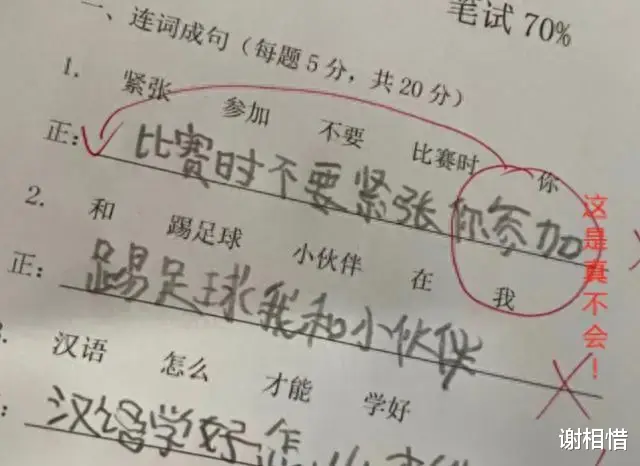 笔试 70%
一、连词成句（每题5分，共20分）
1. 紧张 参加 不要 比赛时 你
正：比赛时不要紧张你参加
2. 和 踢足球 小伙伴 在 我
正：踢足球我和小伙伴
汉语 怎么 才能 学好
汉语学好怎
这是真不会！
谢相惜